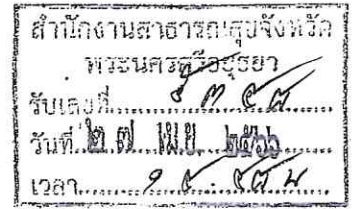 สำนักงานสาธารณสุขจังหวัด
พระนครศรีอยุธยา
รับเลขที่
วันที่ ๒๗ เม.ย. ๒๕๖๖
เวลา